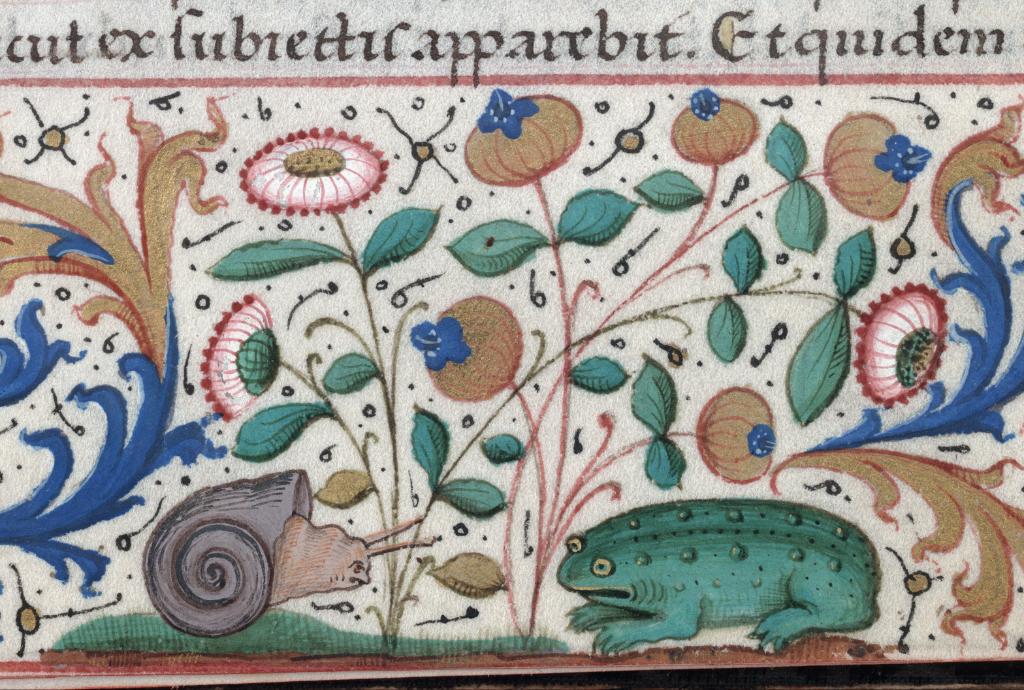 cut ex subiectis apparebit. Et quidem